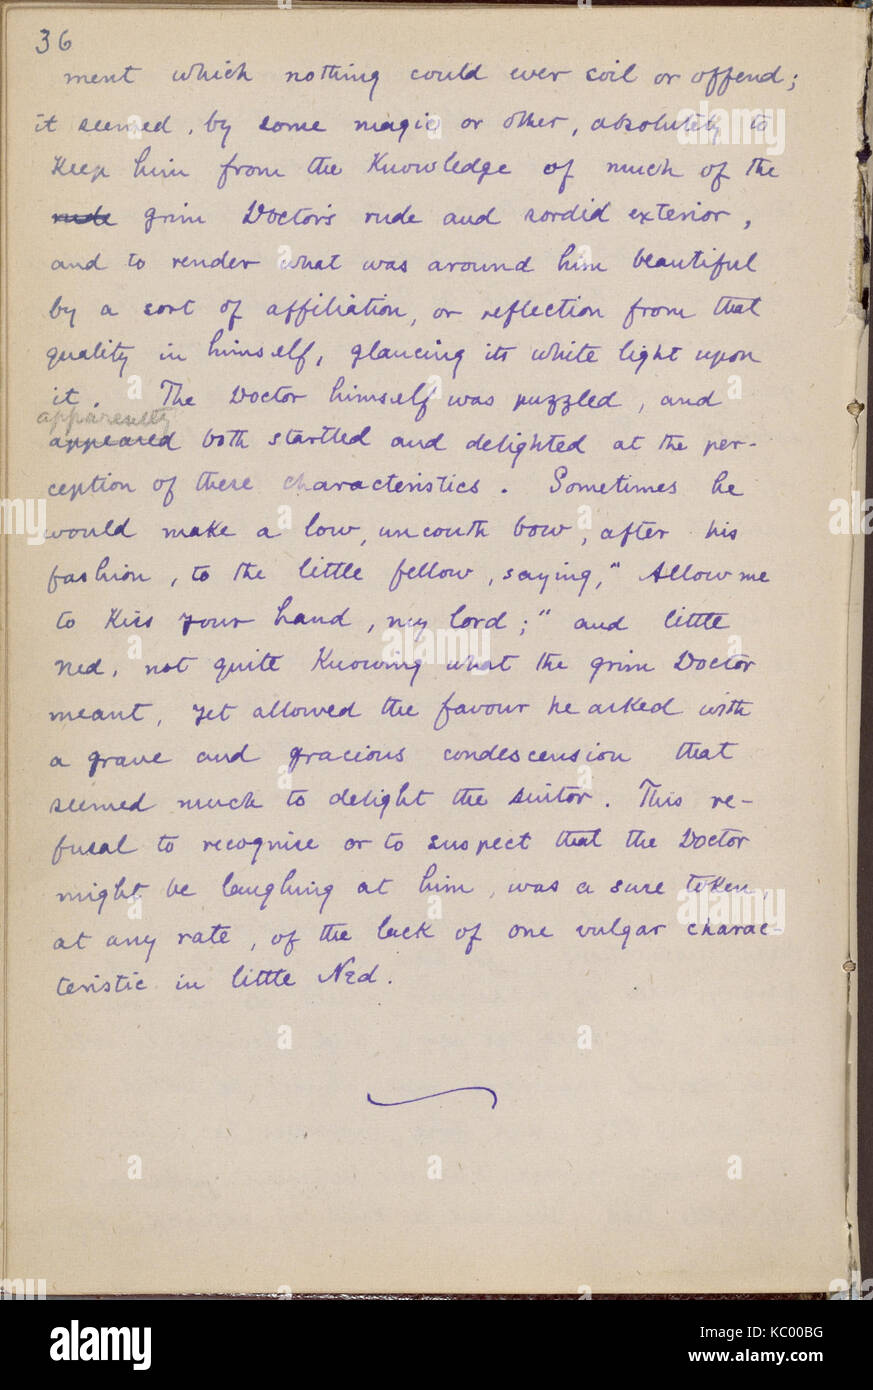 36
ment which nothing could ever soil or offend;
it seemed, by some magic or other, absolutely to
Keep him from the Knowledge of much of the
rude grim Doctor's rude and sordid exterior,
and to render what was around him beautiful
by a sort of affiliation, or reflection from that
quality in himself, glancing its white light upon
it. The Doctor himself was puzzled, and
apparently
appeared both startled and delighted at the per-
ception of these characteristics. Sometimes he
would make a low, uncouth bow, after his
fashion, to the little fellow, saying, "Allow me
to Kiss your hand, my lord;" and little
Ned, not quite Knowing what the grim Doctor
meant, yet allowed the favour he asked with
a grave and gracious condescension that
seemed much to delight the suitor. This re-
fusal to recognise or to suspect that the Doctor
might be laughing at him, was a sure token,
at any rate, of the lack of one vulgar charac-
teristic in little Ned.
alamy
Image ID: KC00BG
www.alamy.com